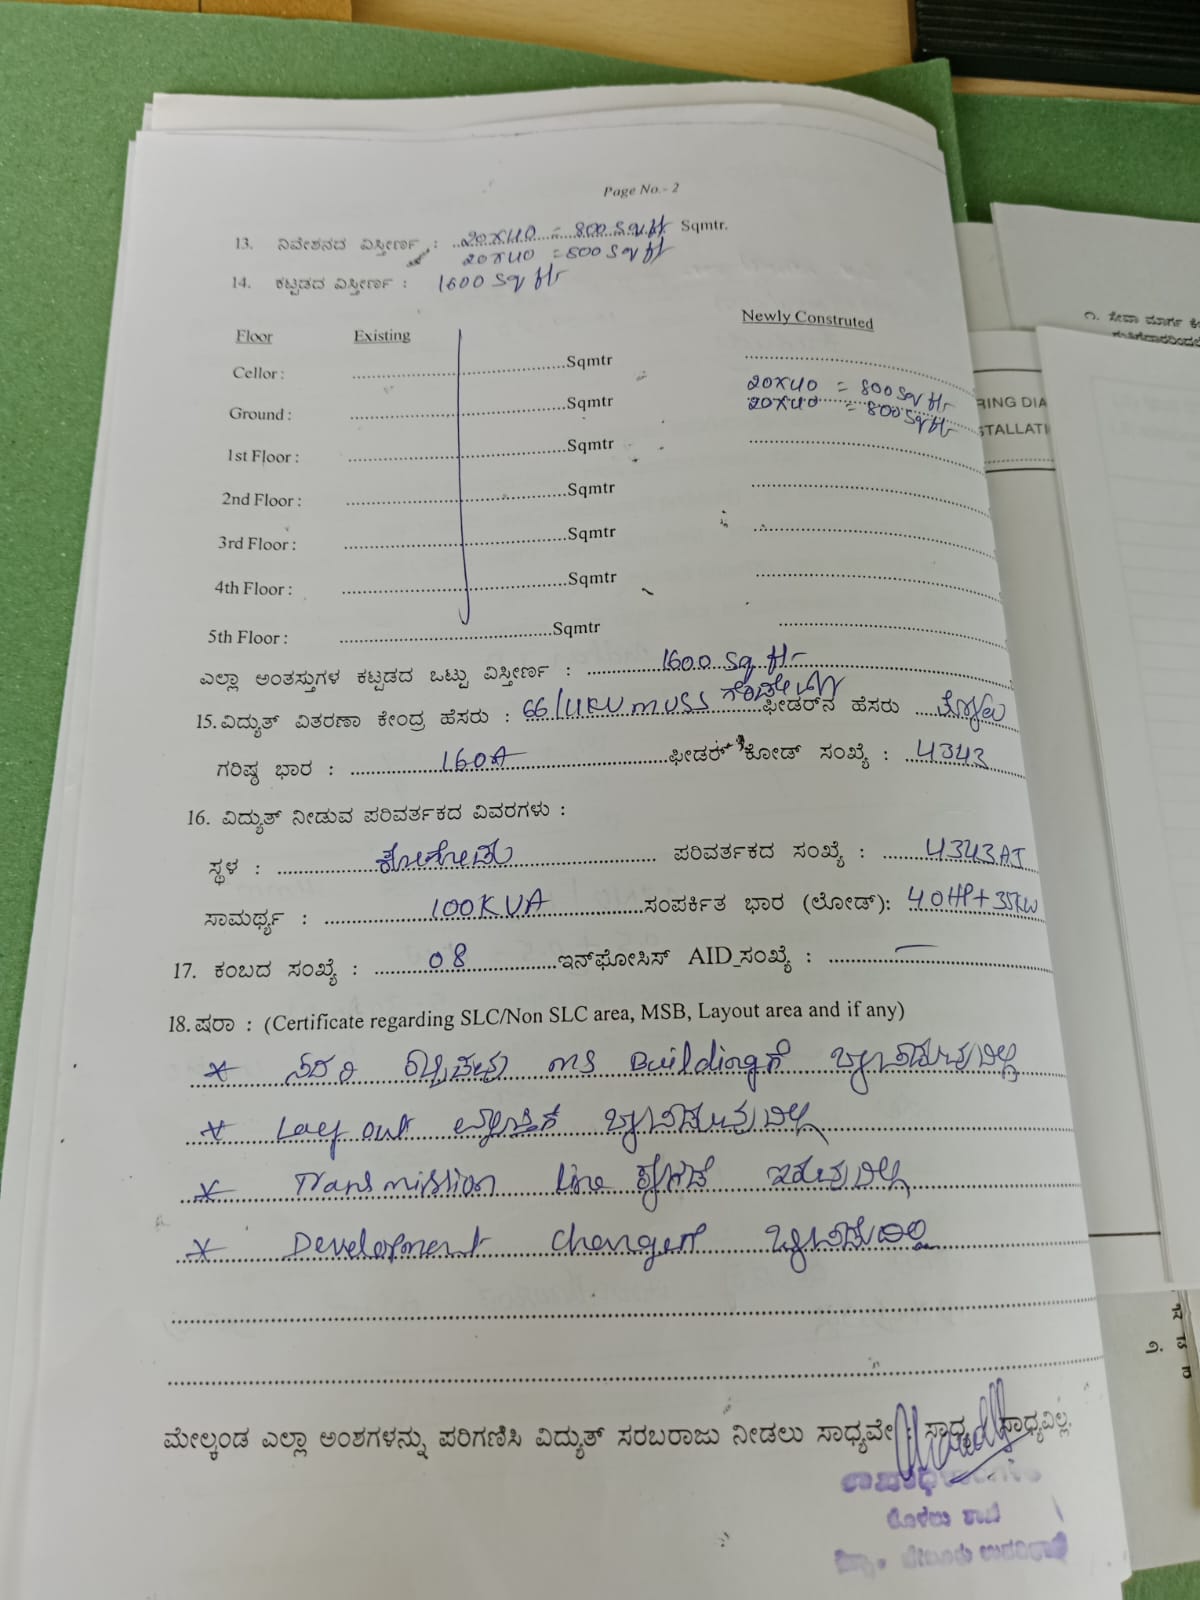 Page No.- 2
13. ನಿವೇಶನದ ವಿಸ್ತೀರ್ಣ : 20X40 = 800 Sq.ft Sqmtr.
20X40 = 800 Sq ft
14. ಕಟ್ಟಡದ ವಿಸ್ತೀರ್ಣ : 1600 Sq ft
Floor Existing Newly Construted
Cellor : Sqmtr
Ground : Sqmtr 20X40 = 800 Sq ft
20X40 = 800 Sq ft
1st Floor : Sqmtr
2nd Floor : Sqmtr
3rd Floor : Sqmtr
4th Floor : Sqmtr
5th Floor : Sqmtr
ಎಲ್ಲಾ ಅಂತಸ್ತುಗಳ ಕಟ್ಟಡದ ಒಟ್ಟು ವಿಸ್ತೀರ್ಣ : 1600 Sq ft
15. ವಿದ್ಯುತ್ ವಿತರಣಾ ಕೇಂದ್ರ ಹೆಸರು : 66/11KV MUSS ಫೀಡರ್‌ನ ಹೆಸರು
ಗರಿಷ್ಠ ಭಾರ : 160A ಫೀಡರ್ ಕೋಡ್ ಸಂಖ್ಯೆ : 4343
16. ವಿದ್ಯುತ್ ನೀಡುವ ಪರಿವರ್ತಕದ ವಿವರಗಳು :
ಸ್ಥಳ : ಪರಿವರ್ತಕದ ಸಂಖ್ಯೆ : 4343AI
ಸಾಮರ್ಥ್ಯ : 100KVA ಸಂಪರ್ಕಿತ ಭಾರ (ಲೋಡ್): 40HP+35KW
17. ಕಂಬದ ಸಂಖ್ಯೆ : 08 ಇನ್‌ಫೋಸಿಸ್ AID ಸಂಖ್ಯೆ : —
18. ಷರಾ : (Certificate regarding SLC/Non SLC area, MSB, Layout area and if any)
* ಸದರಿ MS Buildingಗೆ
* Layout
* Transmission line ಕೆಳಗಡೆ ಇರುವುದಿಲ್ಲ
* Development
ಮೇಲ್ಕಂಡ ಎಲ್ಲಾ ಅಂಶಗಳನ್ನು ಪರಿಗಣಿಸಿ ವಿದ್ಯುತ್ ಸರಬರಾಜು ನೀಡಲು ಸಾಧ್ಯವೇ ಸಾಧ್ಯ ಸಾಧ್ಯವಿಲ್ಲ.
೧. ಸೇವಾ ಮಾರ್ಗ
RING DIA
STALLATI
೨.